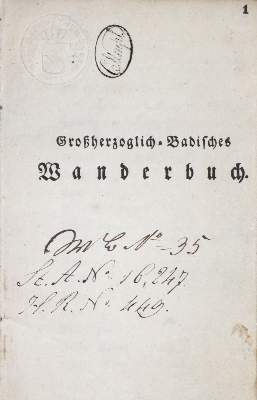 1
Großherzoglich-Badisches
Wanderbuch.
No 35
St. A. No. 16,247.
H. R. No. 449.